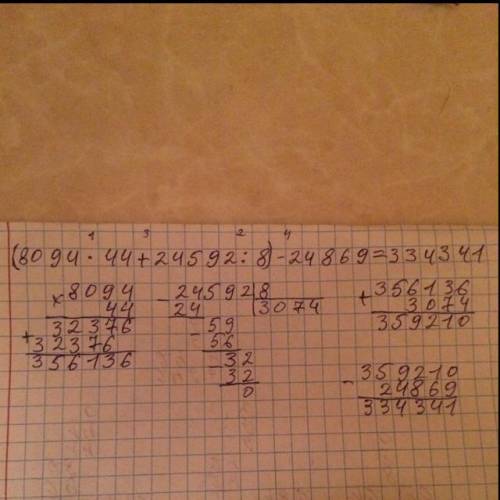 1 3 2 4
(8094 · 44 + 24592 : 8) - 24869 = 334341
× 8094
44
32376
+ 32376
356136
- 24592 | 8
24 3074
- 59
56
- 32
32
0
+ 356136
3074
359210
- 359210
24869
334341